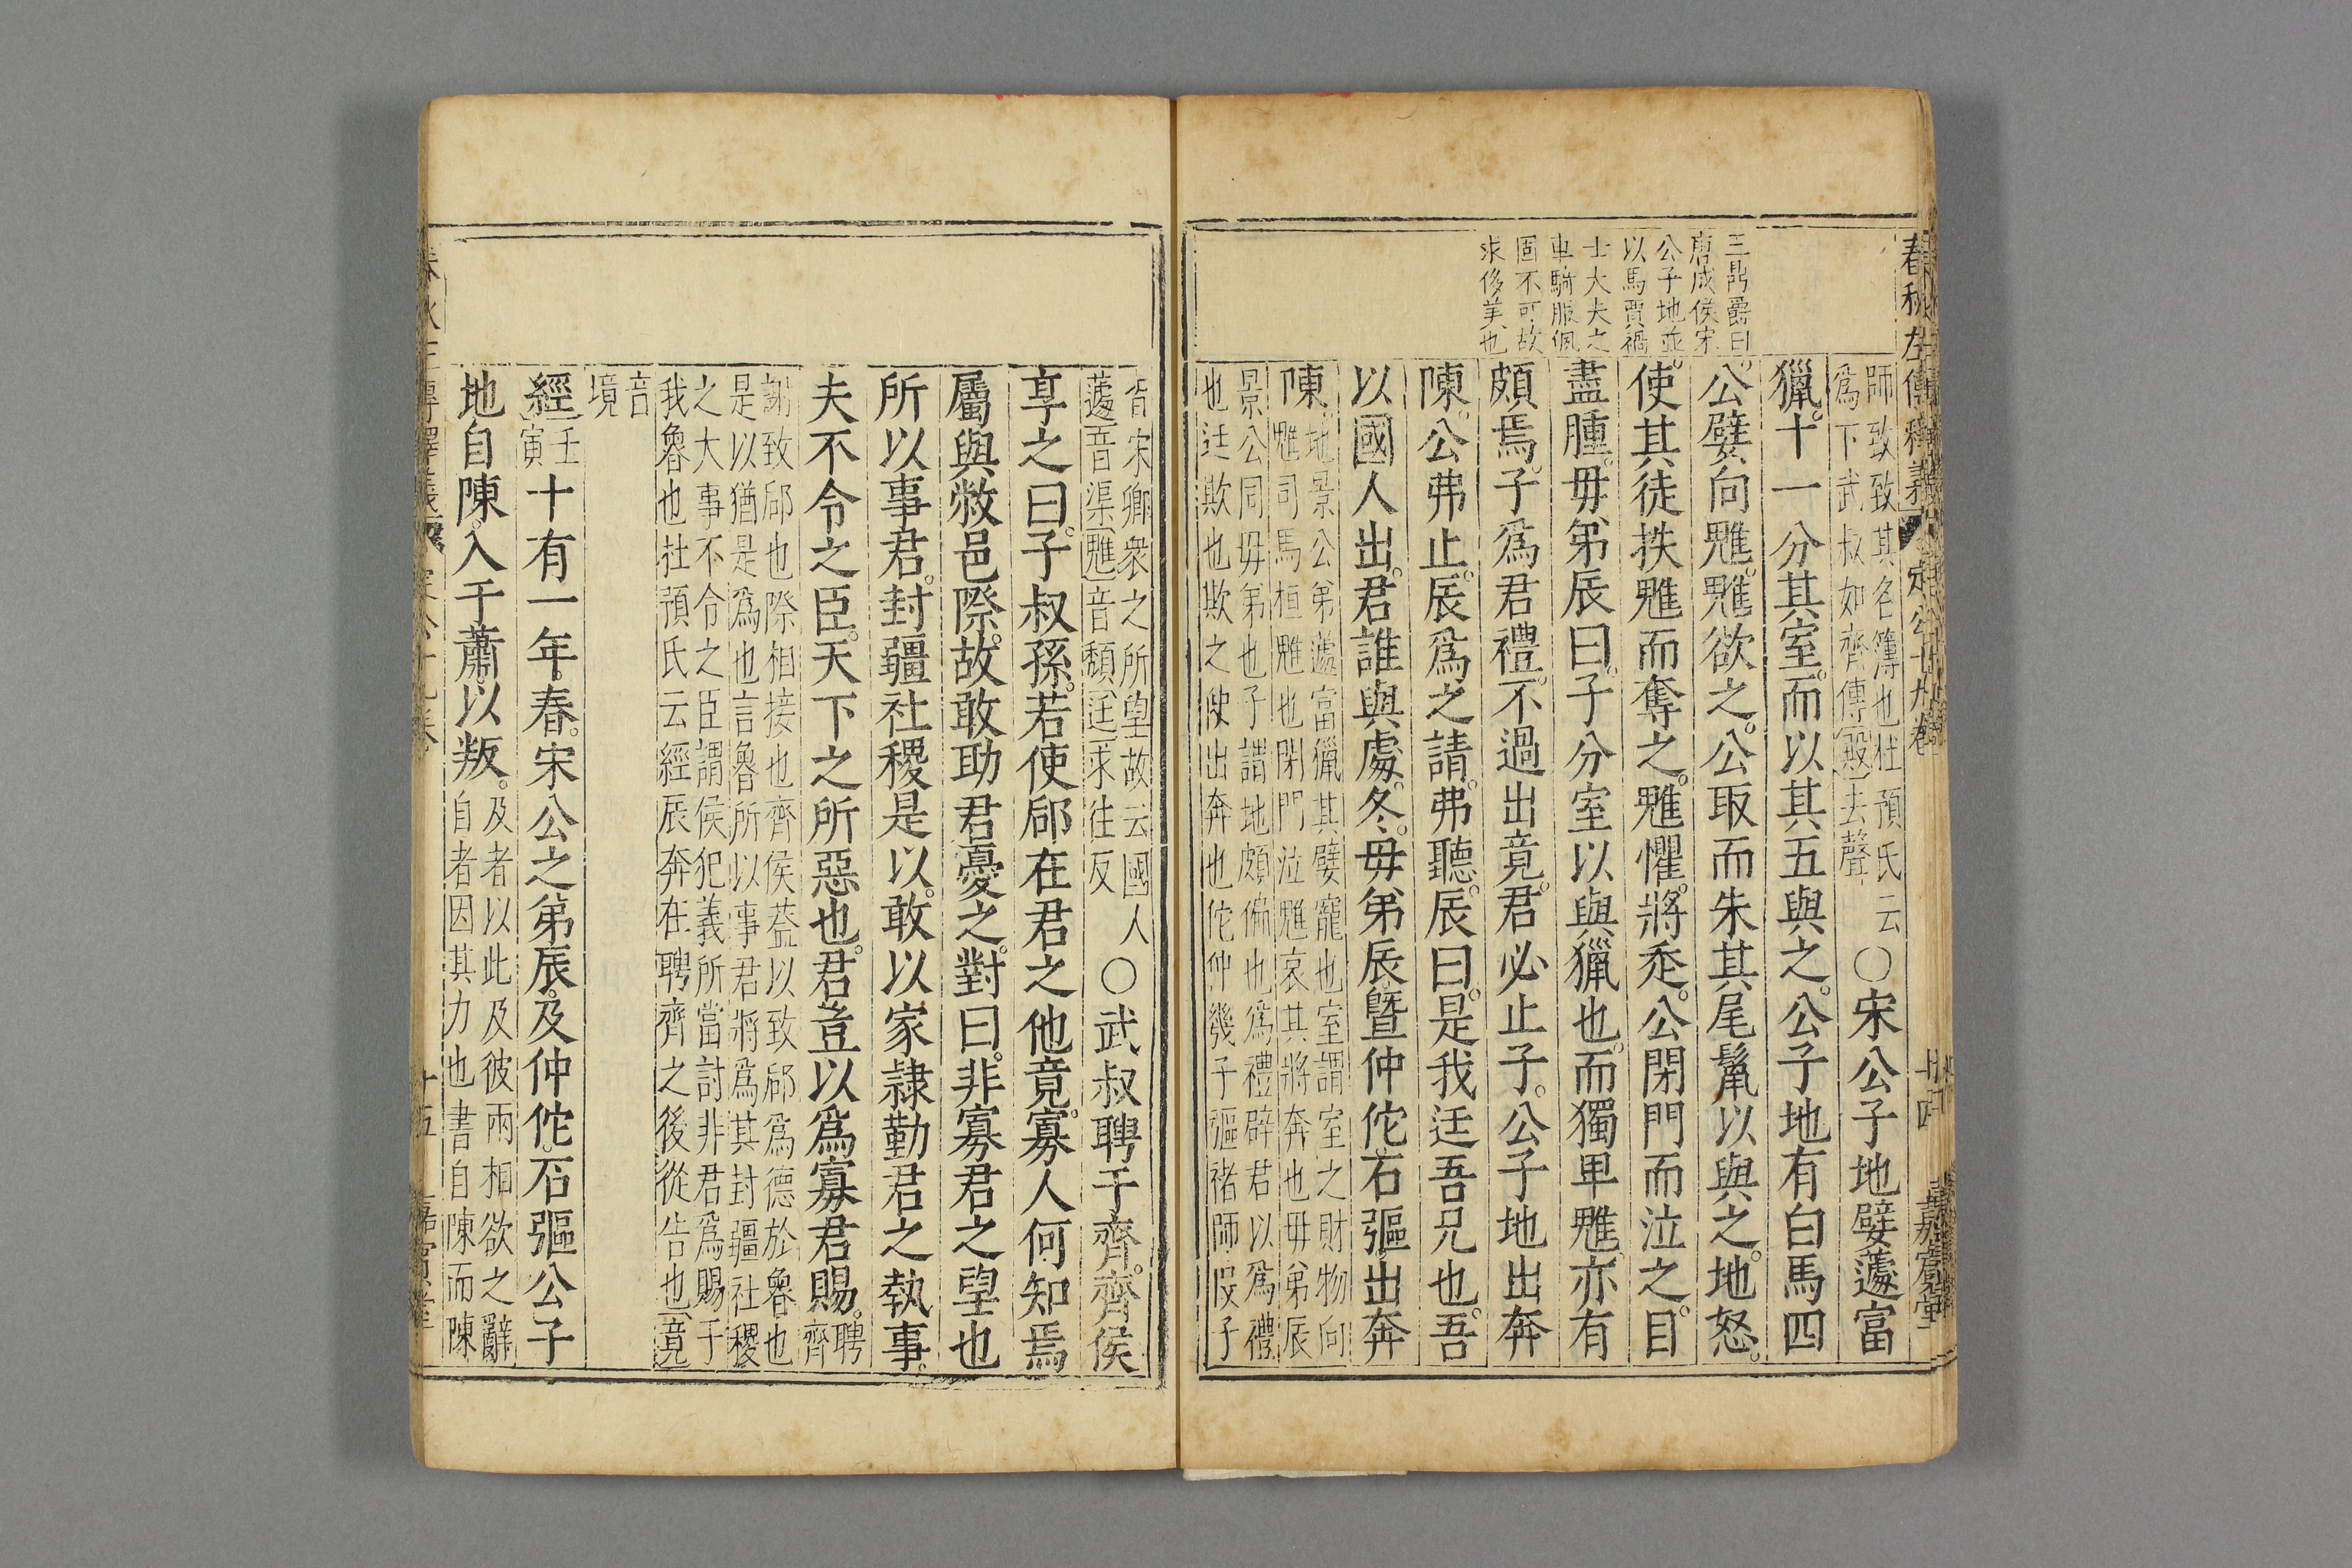 三鼎爵曰
唐成侯宋
公子地並
以馬賈禍
士大夫之
車騎服佩
固不可故
求侈美也
師致致其名簿也杜預氏云
爲下武叔如齊傳殿去聲
○宋公子地嬖蘧富
獵。十一分其室。而以其五與之。公子地有白馬四
公嬖向魋。魋欲之。公取而朱其尾鬣以與之。地怒。
使其徒抶魋而奪之。魋懼。將走。公閉門而泣之。目
盡腫。毋弟辰曰。子分室以與獵也。而獨卑魋。亦有
頗焉。子爲君禮。不過出竟。君必止子。公子地出奔
陳。公弗止。辰爲之請。弗聽。辰曰。是我迋吾兄也。吾
以國人出。君誰與處。冬。毋弟辰暨仲佗石彄出奔
陳。
地景公弟蘧富獵其嬖寵也室謂室之財物向
魋司馬桓魋也閉門泣魋哀其將奔也毋弟辰
景公同毋弟也子謂地頗偏也爲禮辟君以爲禮
也迋欺也欺之使出奔也佗仲幾子彄褚師段子
皆宋卿衆之所望故云國人
蘧音渠魋音頹迋求往反
○武叔聘于齊。齊侯
享之曰。子叔孫。若使郈在君之他竟。寡人何知焉
屬與敝邑際。故敢助君憂之。對曰。非寡君之望也
所以事君。封疆社稷是以。敢以家隷勤君之執事。
夫不令之臣。天下之所惡也。君豈以爲寡君賜。
聘
齊
謝致郈也際相接也齊侯葢以致郈爲德於魯也
是以猶是爲也言魯所以事君將爲其封疆社稷
之大事不令之臣謂侯犯義所當討非君爲賜于
我魯也杜預氏云經辰奔在聘齊之後從告也竟
音
境
經
壬
寅
十有一年。春。宋公之弟辰。及仲佗。石彄公子
地自陳。入于蕭。以叛。
及者以此及彼兩相欲之辭
自者因其力也書自陳而陳